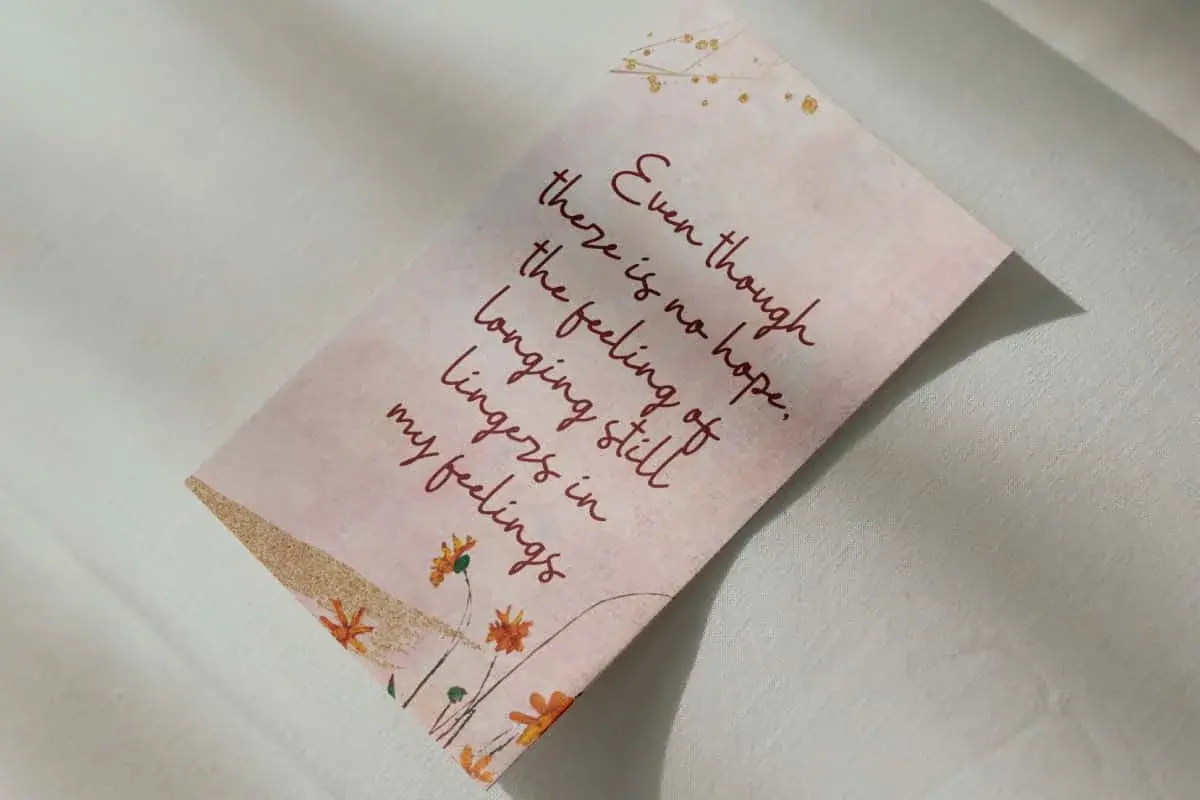 Even though
there is no hope,
the feeling of
longing still
lingers in
my feelings